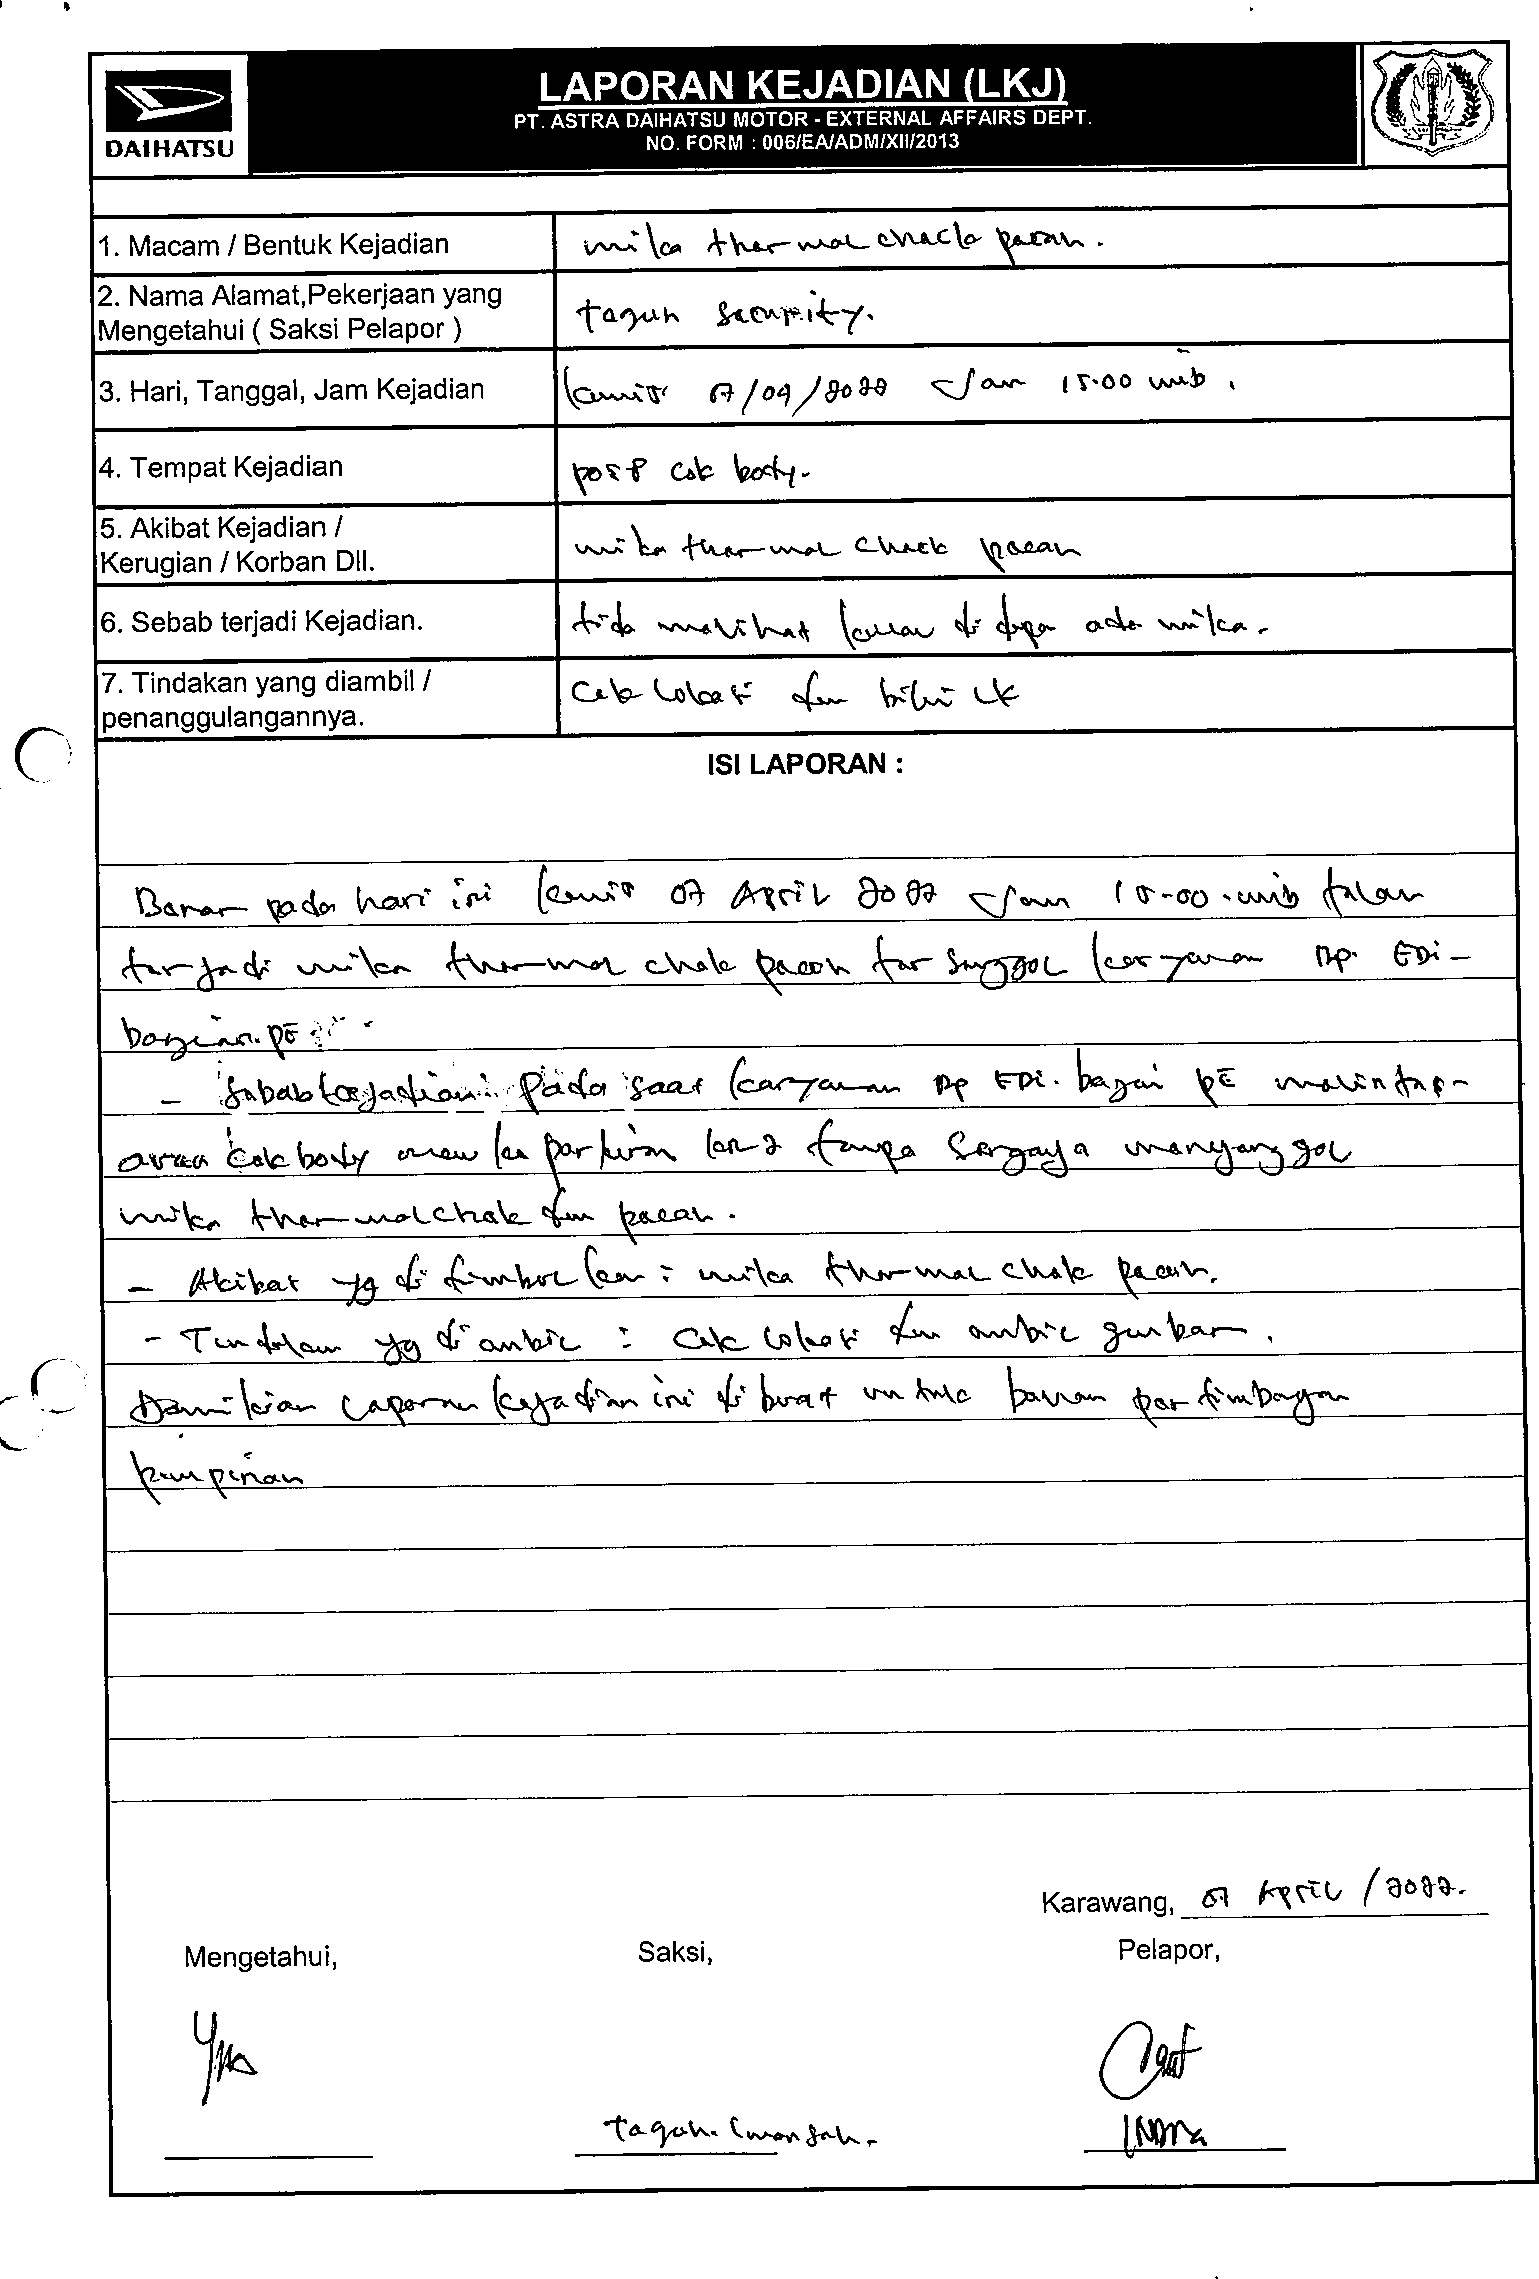 DAIHATSU
LAPORAN KEJADIAN (LKJ)
PT. ASTRA DAIHATSU MOTOR - EXTERNAL AFFAIRS DEPT.
NO. FORM : 006/EA/ADM/XII/2013
1. Macam / Bentuk Kejadian
mika thermal check pecah.
2. Nama Alamat,Pekerjaan yang
Mengetahui ( Saksi Pelapor )
teguh security.
3. Hari, Tanggal, Jam Kejadian
kamis 07/04/2022 Jam 15.00 wib.
4. Tempat Kejadian
pos 8 cek body.
5. Akibat Kejadian /
Kerugian / Korban Dll.
mika thermal check pecah
6. Sebab terjadi Kejadian.
tida melihat kalau di depa ada mika.
7. Tindakan yang diambil /
penanggulangannya.
cek lokasi dan bikin LK
ISI LAPORAN :
Benar pada hari ini kamis 07 April 2022 Jam 15-00.wib telah
terjadi mika thermal chek pecah ter senggol karyawan Bp. EDi -
bagian. PE
- Sebab terjadian : pada saat karyawan Bp EDi. bagai PE melintas -
area cek body mau ke parkiran ken 2 tanpa sengaja menyenggol
mika thermal chek dan pecah.
- Akibat yg di timbul kan : mika thermal chek pecah.
- Tindakan yg di ambil : cek lokasi dan ambil gambar.
Demikian laporan kejadian ini di buat untuk bahan pertimbagan
pimpinan
Karawang, 07 April / 2022.
Mengetahui,
Saksi,
Pelapor,
Teguh. Imansah.
INDRA